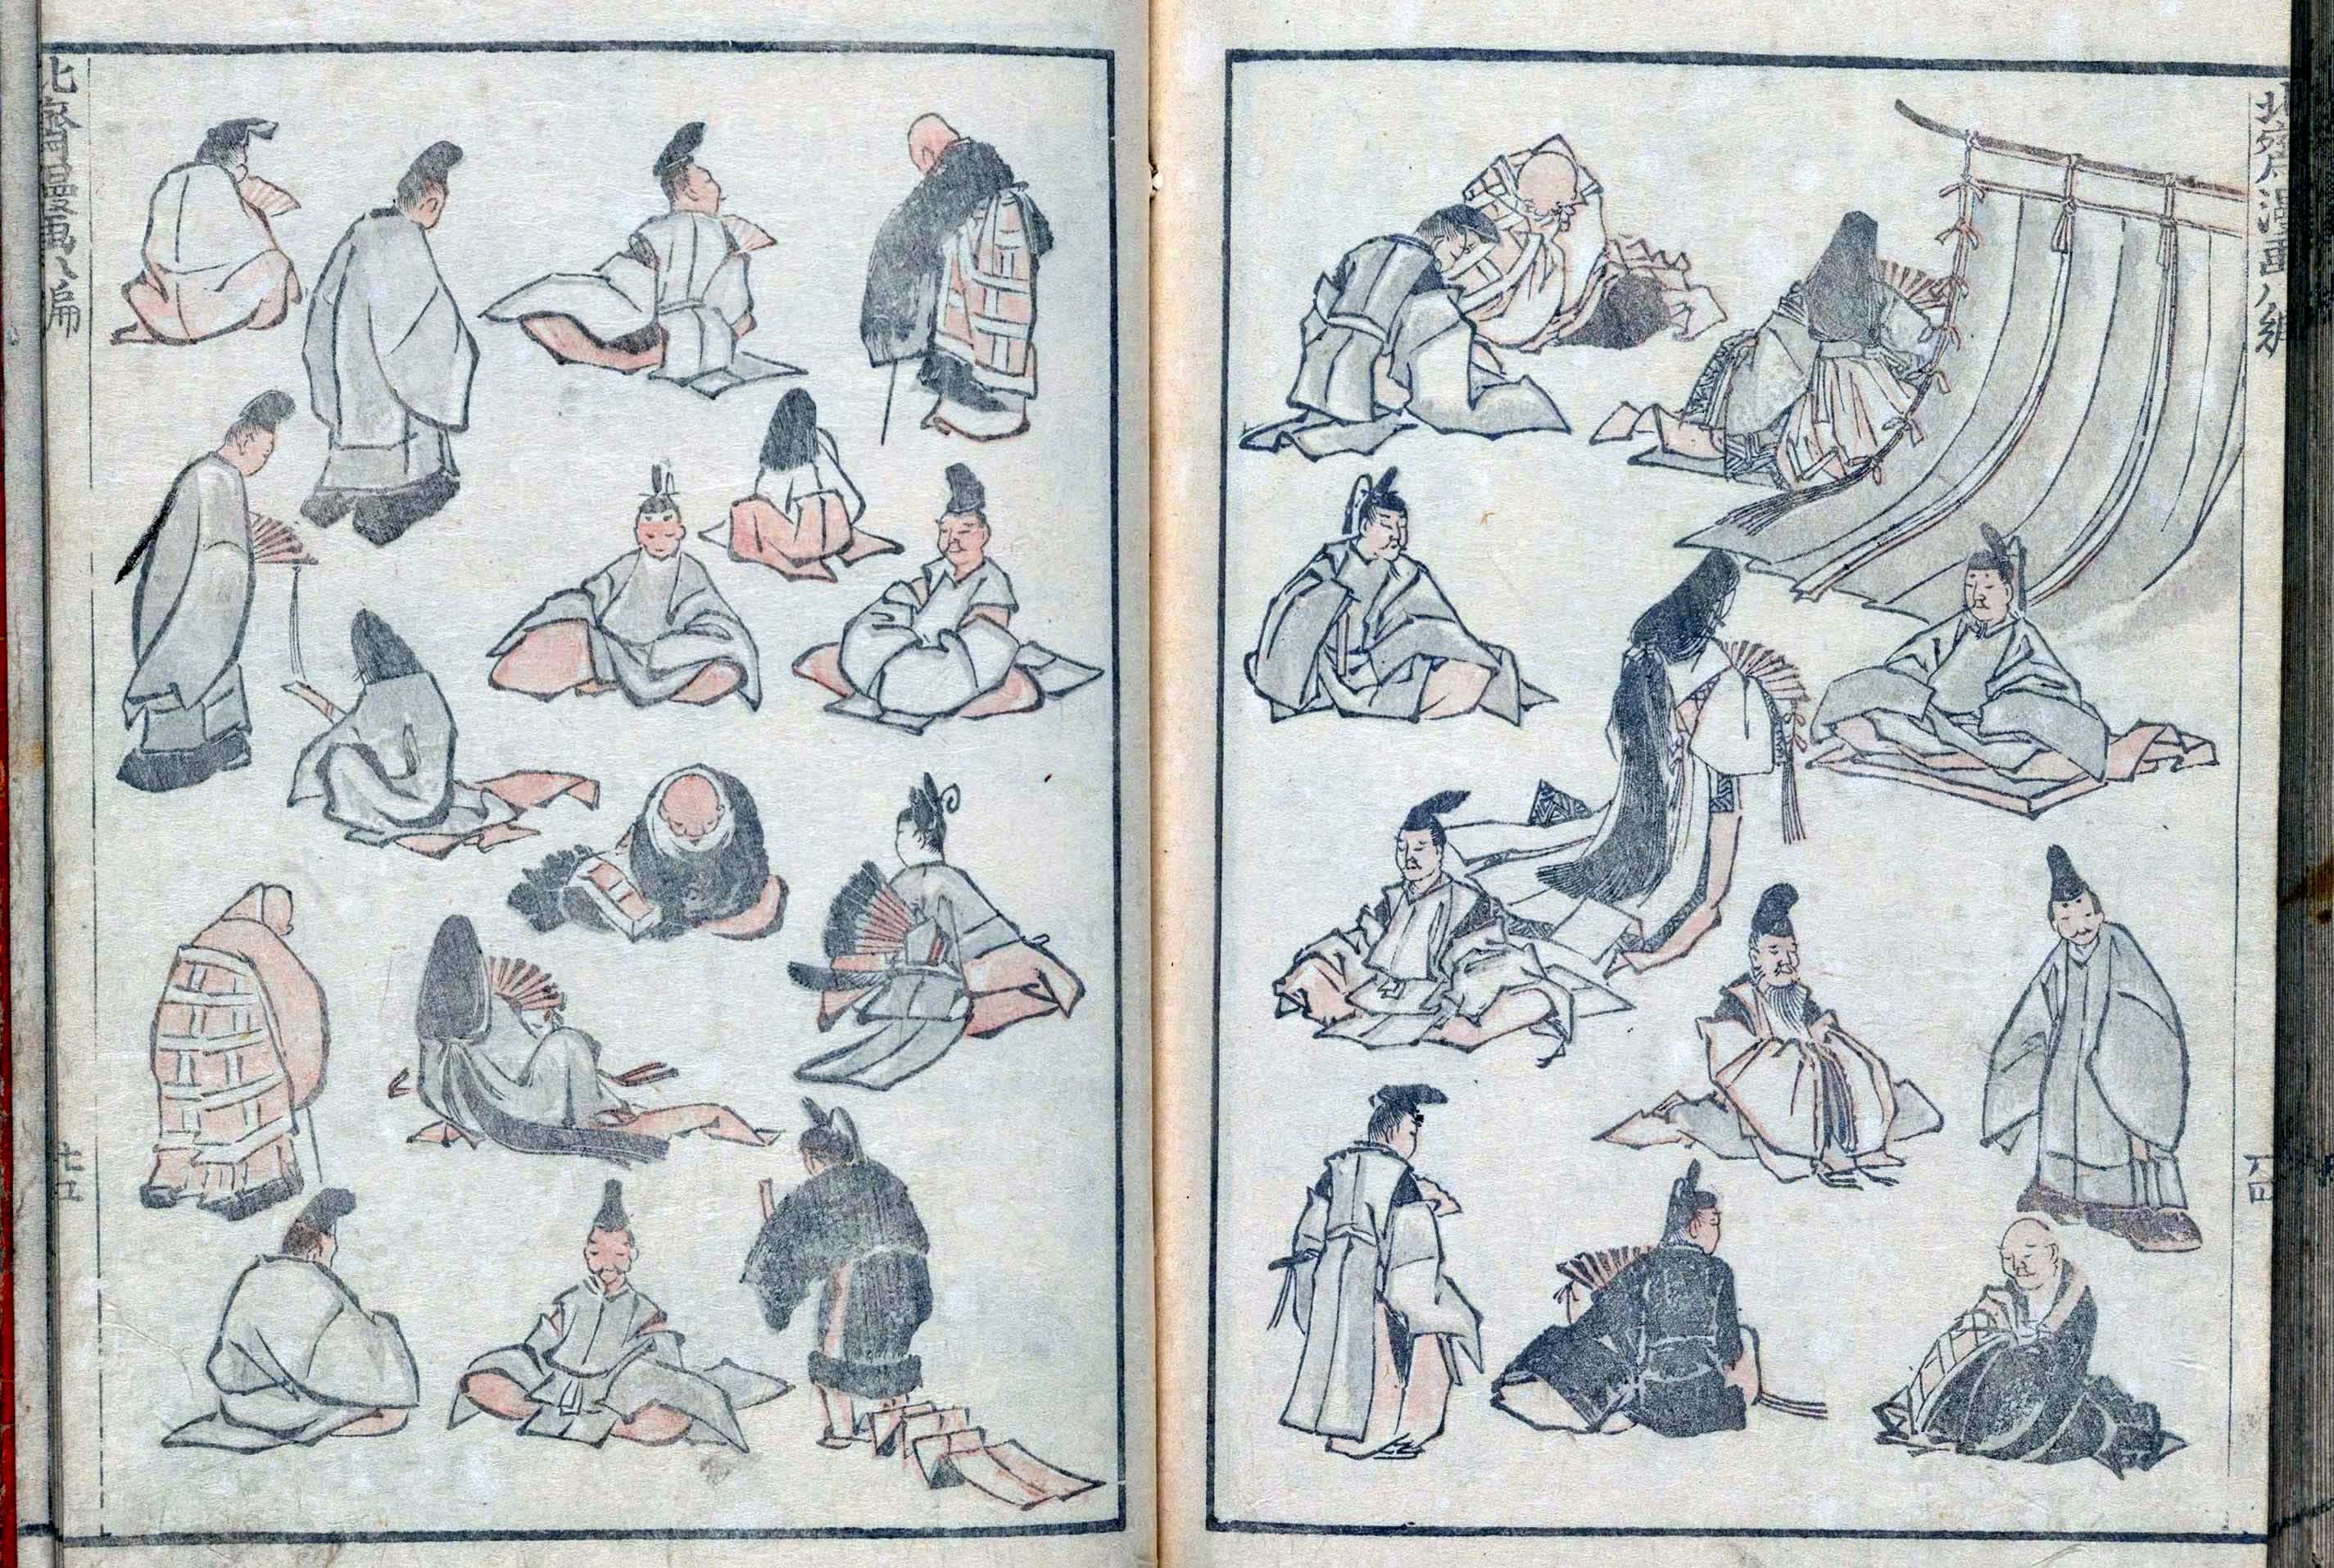 北齋漫画八編
十四
北齋漫画八編
十五